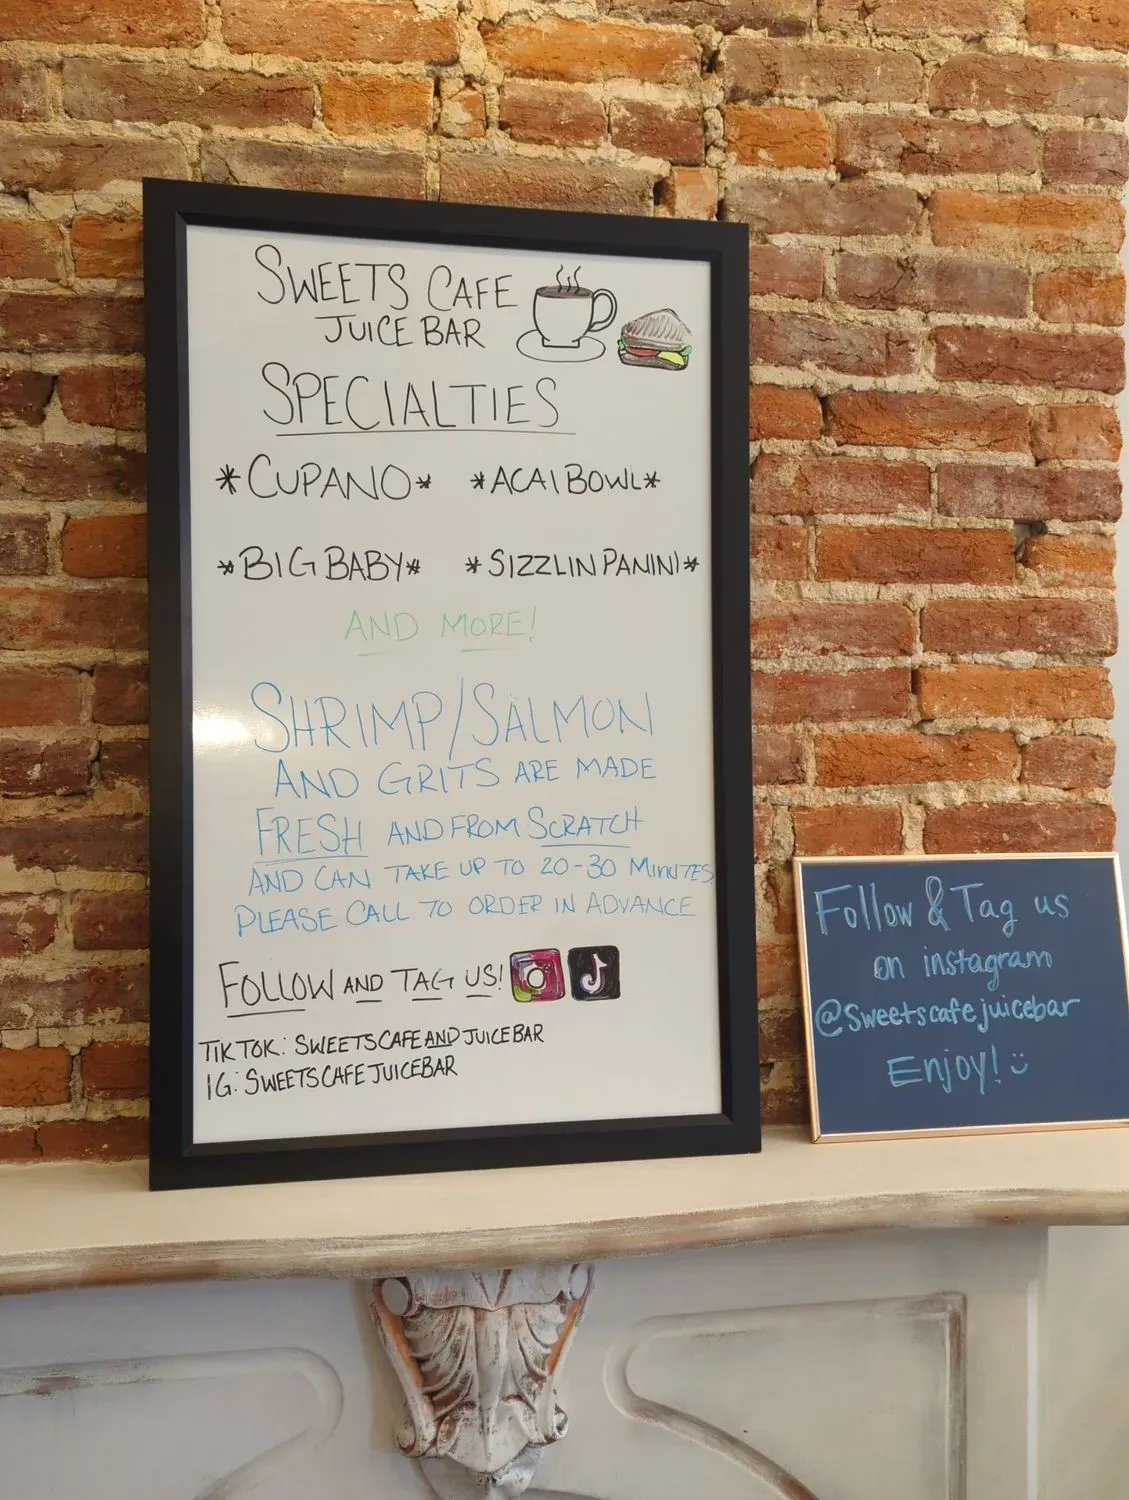 SWEETS CAFE
JUICE BAR
SPECIALTIES
*CUPANO* *ACAI BOWL*
*BIG BABY* *SIZZLIN PANINI*
AND MORE!
SHRIMP/SALMON
AND GRITS ARE MADE
FRESH AND FROM SCRATCH
AND CAN TAKE UP TO 20-30 MINUTES
PLEASE CALL TO ORDER IN ADVANCE
FOLLOW AND TAG US!
TIKTOK: SWEETSCAFEANDJUICEBAR
IG: SWEETSCAFEJUICEBAR
Follow & Tag us
on instagram
@Sweetscafejuicebar
Enjoy! :)